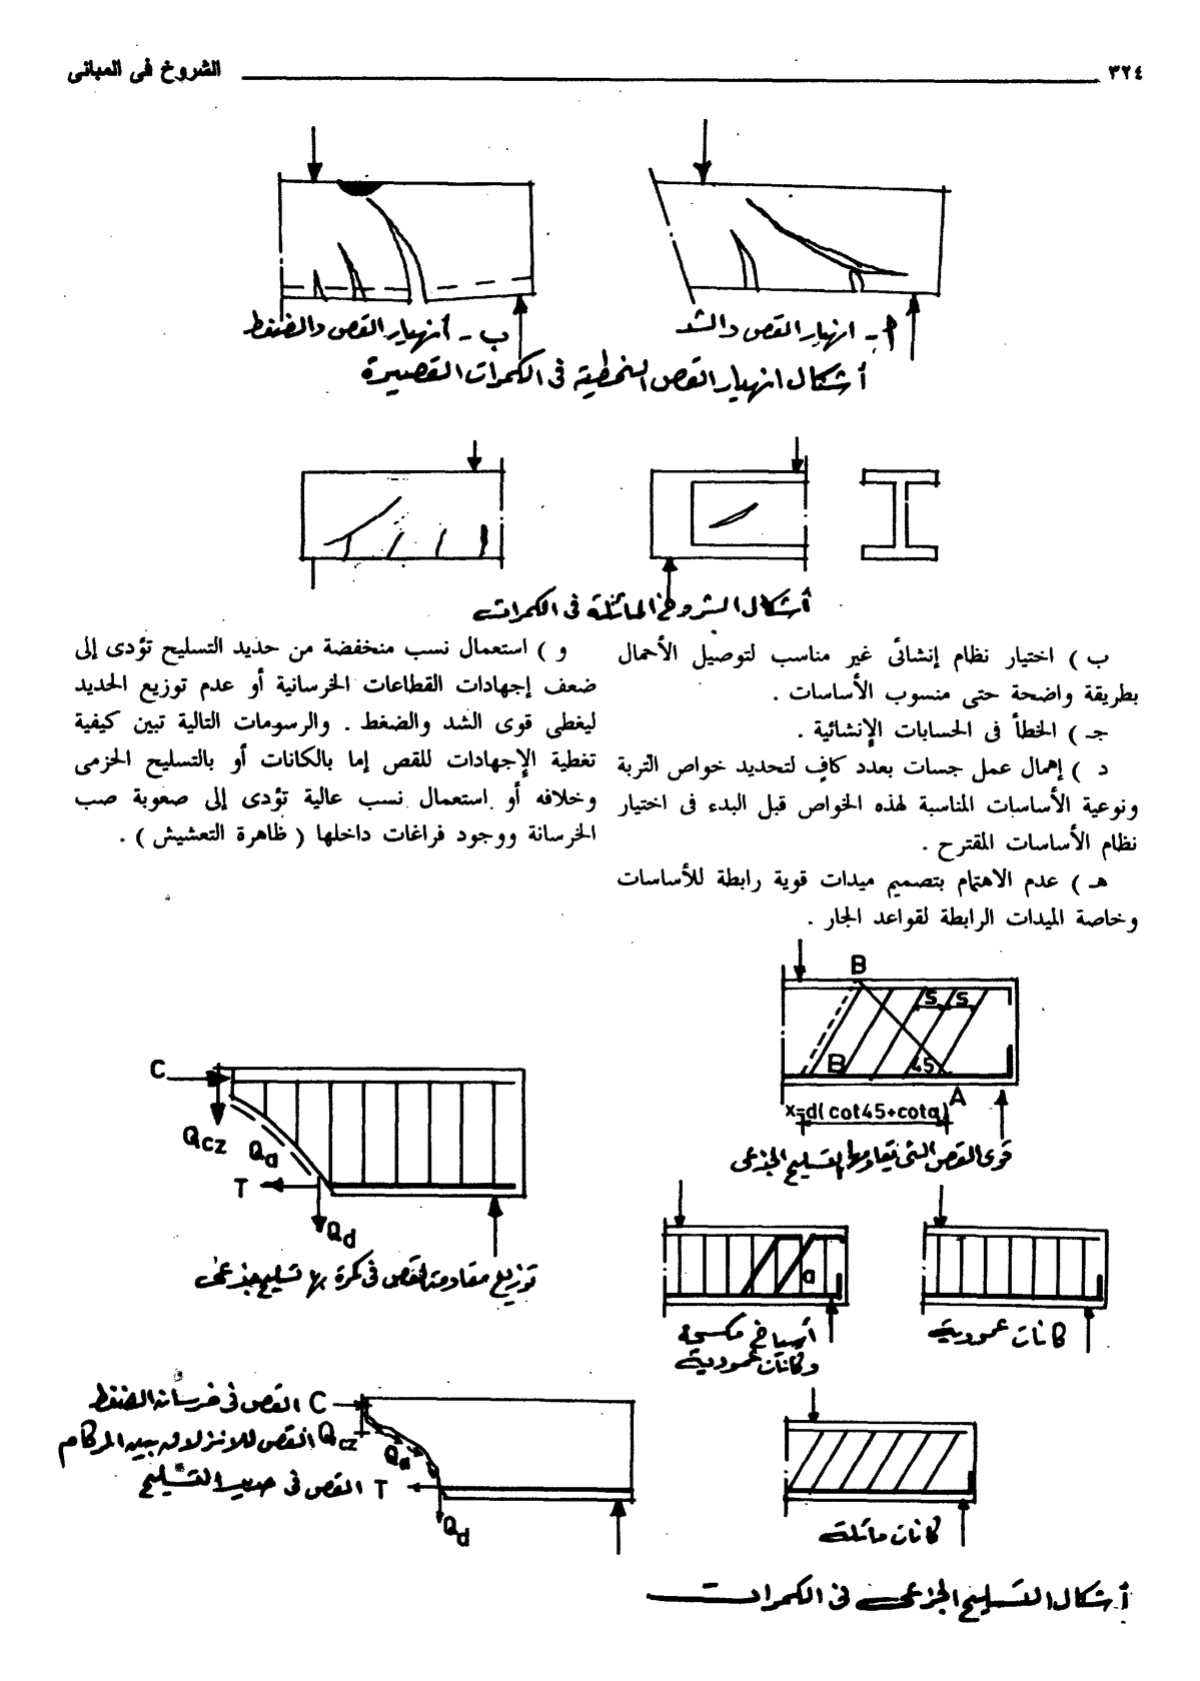 ٣٢٤
الشروخ فى المبانى
أ - انهيار القص والشد
ب - أنهيار القص والضغط
أشكال انهيار القص النمطية فى الكمرات القصيرة
أشكال الشروخ المائلة فى الكمرات
ب ) اختيار نظام إنشائى غير مناسب لتوصيل الأحمال
بطريقة واضحة حتى منسوب الأساسات .
جـ ) الخطأ فى الحسابات الإنشائية .
د ) إهمال عمل جسات بعدد كافٍ لتحديد خواص التربة
ونوعية الأساسات المناسبة لهذه الخواص قبل البدء فى اختيار
نظام الأساسات المقترح .
هـ ) عدم الاهتمام بتصميم ميدات قوية رابطة للأساسات
وخاصة الميدات الرابطة لقواعد الجار .
و ) استعمال نسب منخفضة من حديد التسليح تؤدى إلى
ضعف إجهادات القطاعات الخرسانية أو عدم توزيع الحديد
ليغطى قوى الشد والضغط . والرسومات التالية تبين كيفية
تغطية الإجهادات للقص إما بالكانات أو بالتسليح الحزمى
وخلافه أو استعمال نسب عالية تؤدى إلى صعوبة صب
الخرسانة ووجود فراغات داخلها ( ظاهرة التعشيش ) .
B
S S
B
45
A
x=d(cot45+cotα)
قوى القص التى يقاومها التسليح الجذعى
C
Qcz
Qa
T
Qd
توزيع مقاومة القص فى كمرة بها تسليح جذعى
a
أسياخ مكسحة
وكانات عمودية
كانات عمودية
C القص فى خرسانة الضغط
Qcz القص للانزلاق بين الركام
Qa
T القص فى حديد التسليح
Qd
كانات مائلة
أشكال التسليح الجزعى فى الكمرات